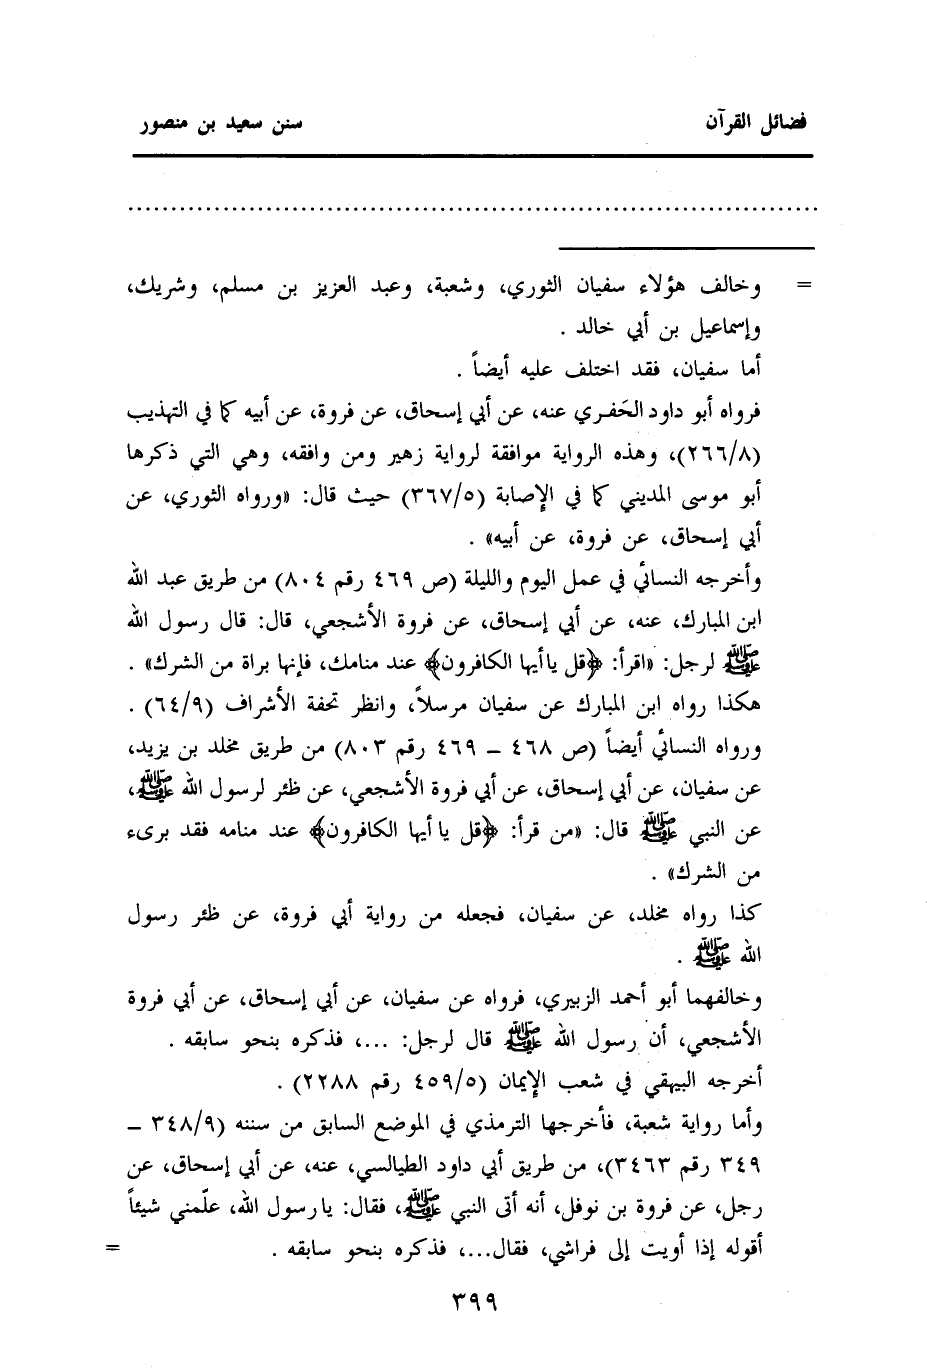 فضائل القرآن
سنن سعيد بن منصور
= وخالف هؤلاء سفيان الثوري، وشعبة، وعبد العزيز بن مسلم، وشريك،
وإسماعيل بن أبي خالد .
أما سفيان، فقد اختلف عليه أيضاً .
فرواه أبو داود الحَفـري عنه، عن أبي إسحاق، عن فروة، عن أبيه كما في التهذيب
(٢٦٦/٨)، وهذه الرواية موافقة لرواية زهير ومن وافقه، وهي التي ذكرها
أبو موسى المديني كما في الإصابة (٣٦٧/٥) حيث قال: «ورواه الثوري، عن
أبي إسحاق، عن فروة، عن أبيه» .
وأخرجه النسائي في عمل اليوم والليلة (ص ٤٦٩ رقم ٨٠٤) من طريق عبد الله
ابن المبارك، عنه، عن أبي إسحاق، عن فروة الأشجعي، قال: قال رسول الله
ﷺ لرجل: «اقرأ: ﴿قل ياأيها الكافرون﴾ عند منامك، فإنها براة من الشرك» .
هكذا رواه ابن المبارك عن سفيان مرسلاً، وانظر تحفة الأشراف (٦٤/٩) .
ورواه النسائي أيضاً (ص ٤٦٨ – ٤٦٩ رقم ٨٠٣) من طريق مخلد بن يزيد،
عن سفيان، عن أبي إسحاق، عن أبي فروة الأشجعي، عن ظئر لرسول الله ﷺ،
عن النبي ﷺ قال: «من قرأ: ﴿قل يا أيها الكافرون﴾ عند منامه فقد برىء
من الشرك» .
كذا رواه مخلد، عن سفيان، فجعله من رواية أبي فروة، عن ظئر رسول
الله ﷺ .
وخالفهما أبو أحمد الزبيري، فرواه عن سفيان، عن أبي إسحاق، عن أبي فروة
الأشجعي، أن رسول الله ﷺ قال لرجل: ...، فذكره بنحو سابقه .
أخرجه البيهقي في شعب الإيمان (٤٥٩/٥ رقم ٢٢٨٨) .
وأما رواية شعبة، فأخرجها الترمذي في الموضع السابق من سننه (٣٤٨/٩ –
٣٤٩ رقم ٣٤٦٣)، من طريق أبي داود الطيالسي، عنه، عن أبي إسحاق، عن
رجل، عن فروة بن نوفل، أنه أتى النبي ﷺ، فقال: يارسول الله، علّمني شيئاً
أقوله إذا أويت إلى فراشي، فقال...، فذكره بنحو سابقه . =
٣٩٩